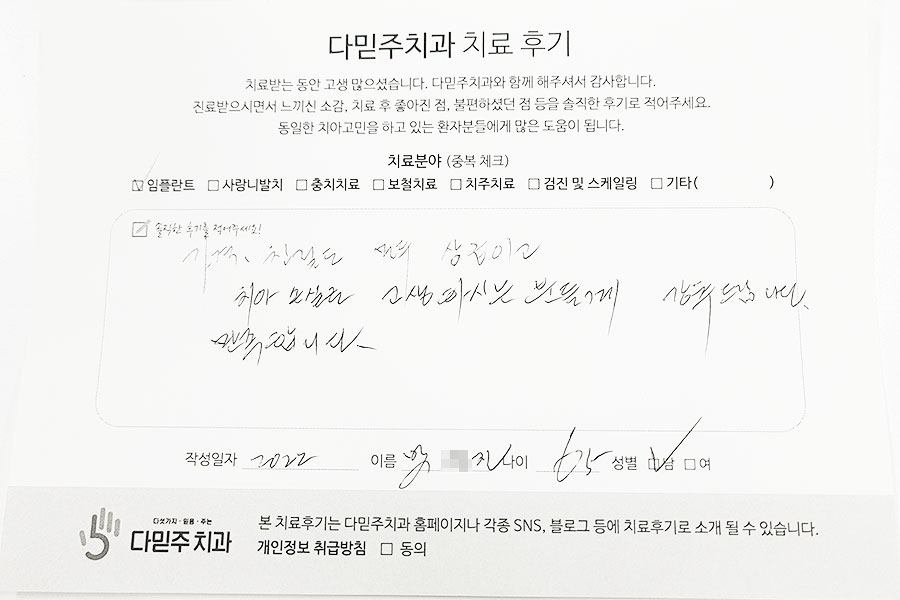 다믿주치과 치료 후기
치료받는 동안 고생 많으셨습니다. 다믿주치과와 함께 해주셔서 감사합니다.
진료받으시면서 느끼신 소감, 치료 후 좋아진 점, 불편하셨던 점 등을 솔직한 후기로 적어주세요.
동일한 치아고민을 하고 있는 환자분들에게 많은 도움이 됩니다.
치료분야 (중복 체크)
임플란트 사랑니발치 충치치료 보철치료 치주치료 검진 및 스케일링 기타( )
솔직한 후기를 적어주세요!
가격, 친절도 상점이고
치아 고생하시는 분들게
만족합니다.
작성일자 2022 이름 나이 성별 남 여
다섯가지·믿음·주는
다믿주치과
본 치료후기는 다믿주치과 홈페이지나 각종 SNS, 블로그 등에 치료후기로 소개 될 수 있습니다.
개인정보 취급방침 동의